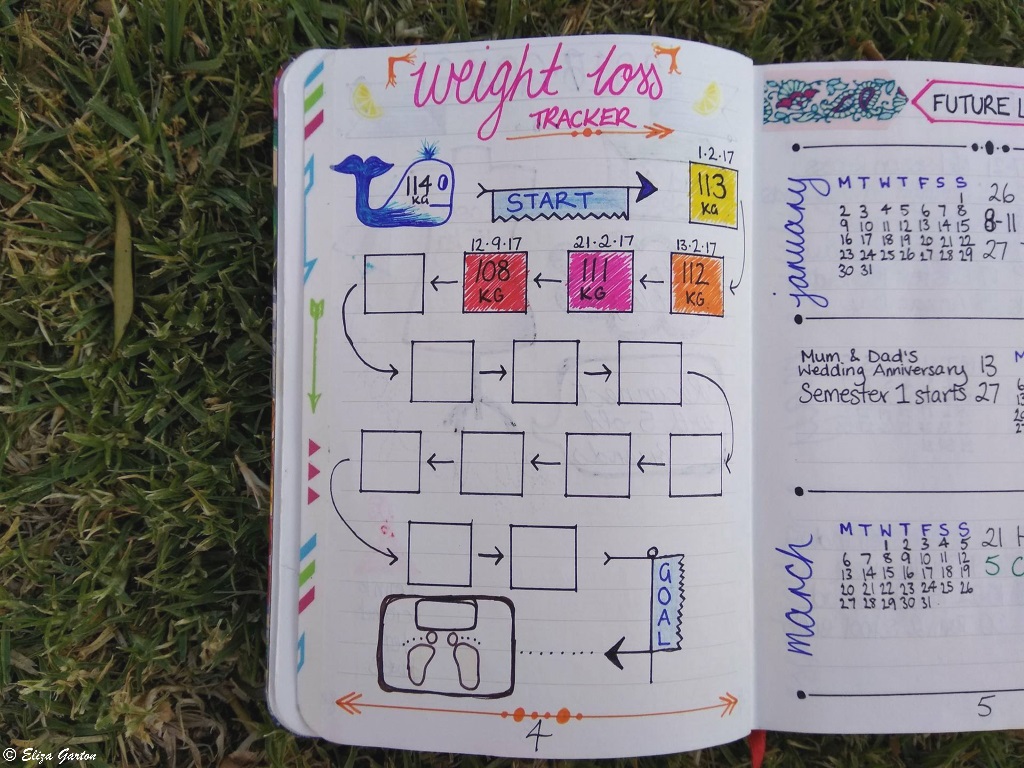 weight loss
TRACKER
114
KG
START
1·2·17
113
KG
12·9·17
21·2·17
13·2·17
108
KG
111
KG
112
KG
GOAL
4
FUTURE L
january
M T W T F S S
1
2 3 4 5 6 7 8
9 10 11 12 13 14 15
16 17 18 19 20 21 22
23 24 25 26 27 28 29
30 31
26
8-11
27
Mum & Dad's
Wedding Anniversary 13
Semester 1 starts 27
M
march
M T W T F S S
1 2 3 4 5
6 7 8 9 10 11 12
13 14 15 16 17 18 19
20 21 22 23 24 25 26
27 28 29 30 31
21 H
5
5
© Eliza Garton